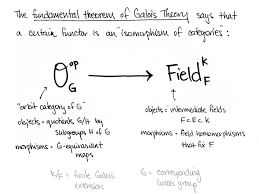 The fundamental theorem of Galois Theory says that
a certain functor is an "isomorphism of categories":
O_G^op ⟶ Field_F^K
"orbit category of G"
objects = quotients G/H by
subgroups H of G
morphisms = G-equivariant
maps
objects = intermediate fields
F⊂E⊂K
morphisms = field homomorphisms
that fix F
K/F = finite Galois
extension
G = corresponding
Galois group